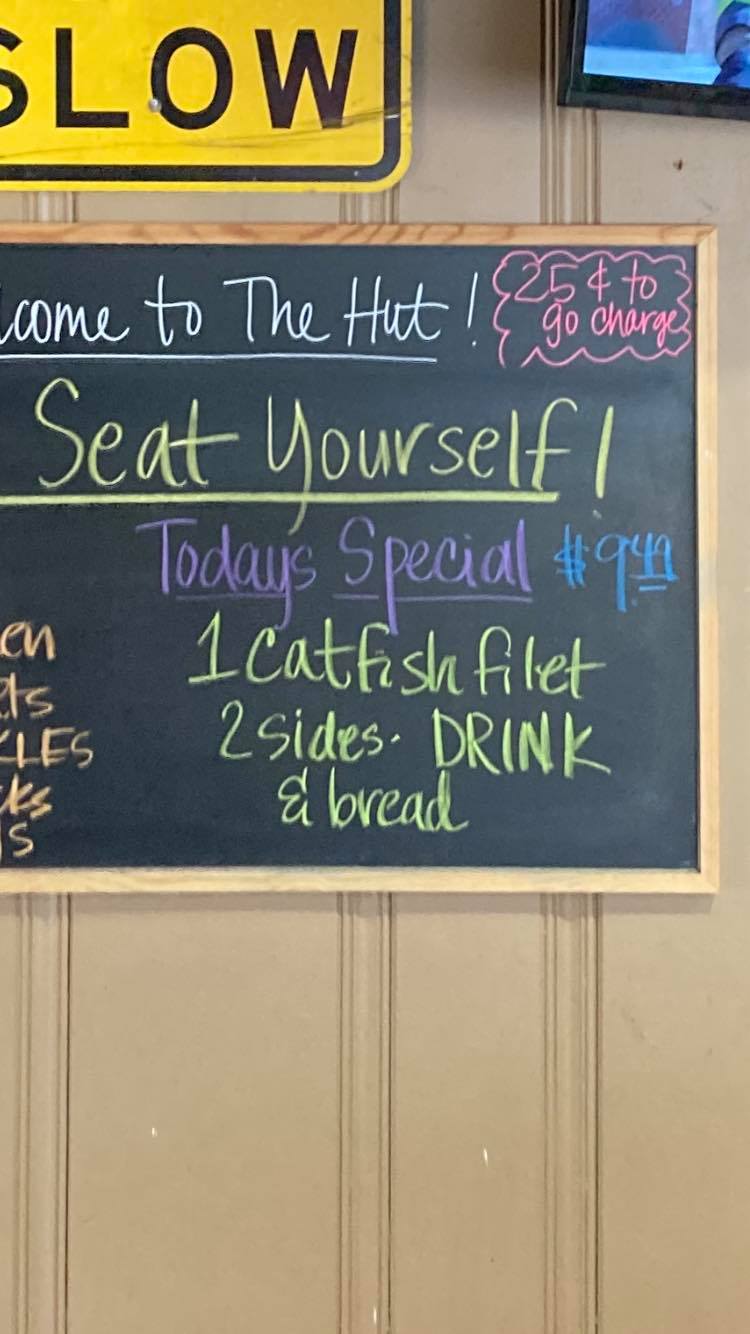 SLOW
lcome to The Hut!
25¢ to
go charge
Seat Yourself!
Todays Special $9.49
en
ts
KLES
ks
s
1 Catfish filet
2 sides. DRINK
& bread